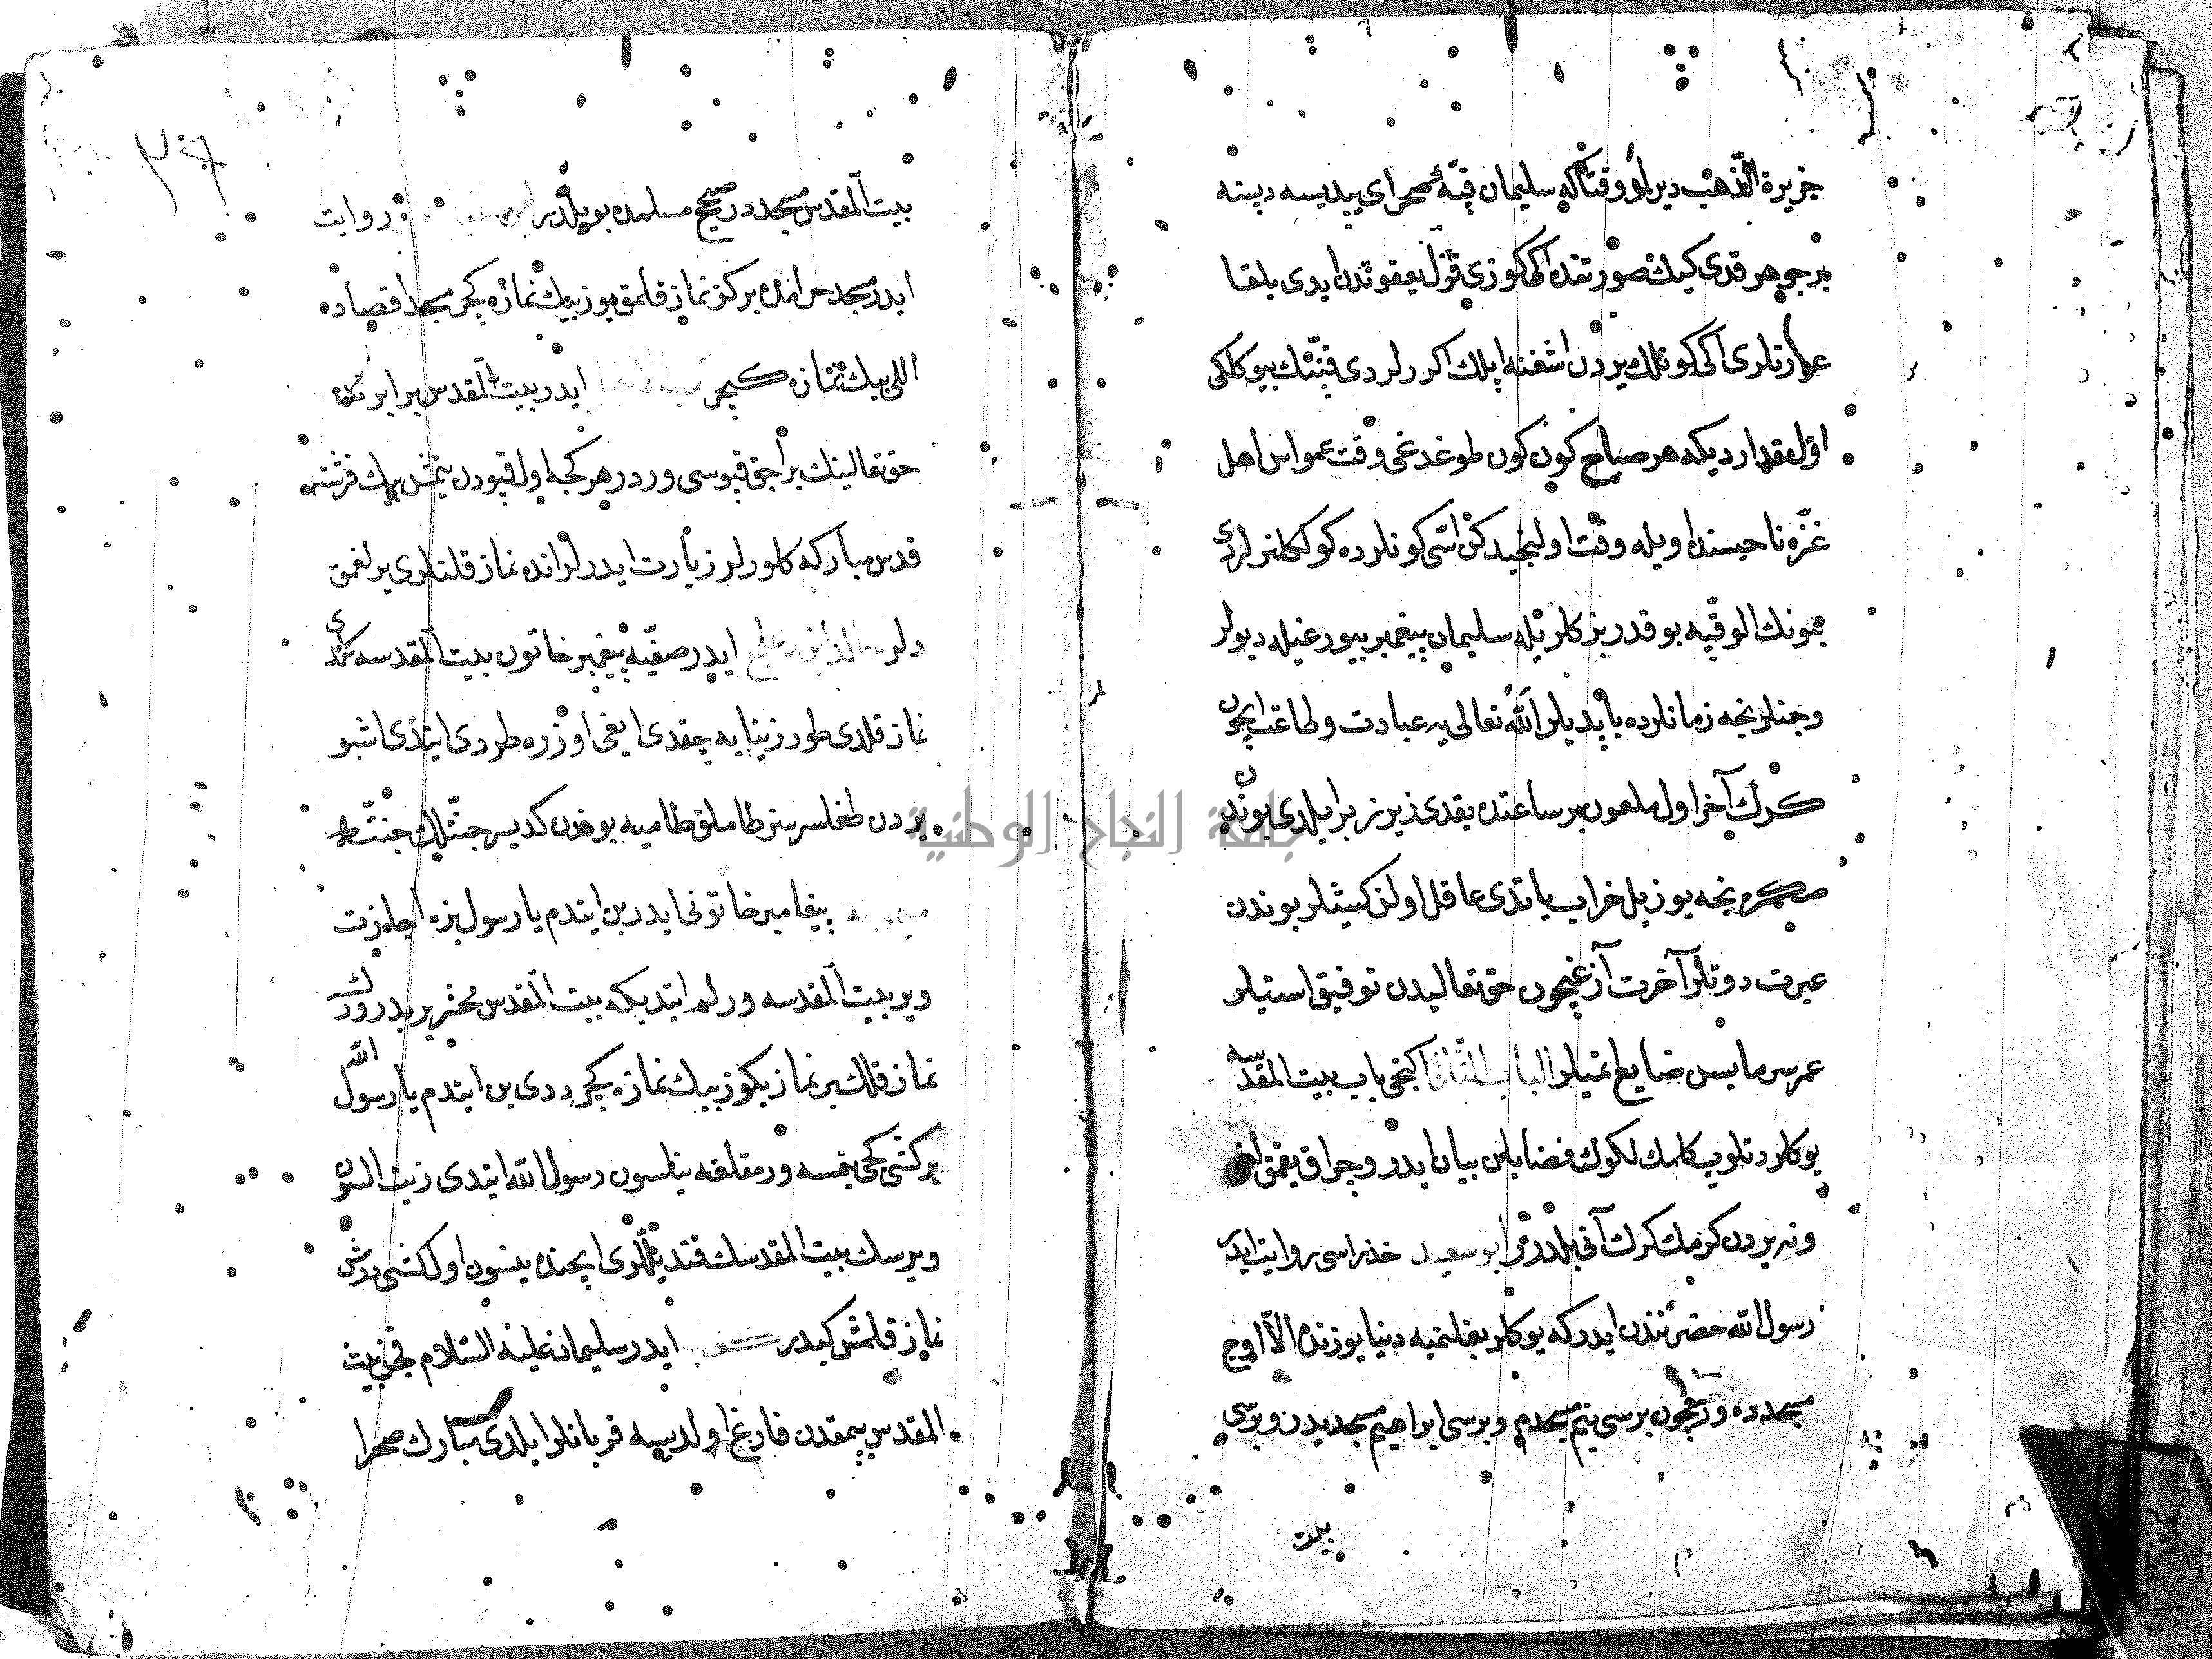 جزيرة الذهب ديرلر و قتاكه سليمان قبۀ صحراى يپديسه دپسنه
بر جوهر قدى كيك صورتنده اكى كوزى قزل يعقوتدن ايدى بلقا
عمارتلرى اكى كونلك يردن اشغنه اپلك اكررلردى قبننك بيوكلكى
اول مقدار ديكه هر صباح كون كون طوغدغى وقت عمواس اهل
غزه ناحيسنده اويله وقت اولنجيدكن اسى كونلرده كولكلنرلردى
بونوك الوقيه بو قدر بزكلريله سليمان پيغمبر بيورغيله ديولر
وجنلر نجه زمانلرده ياپديلر الله تعالى يه عبادت وطاعت ايچون
كرك آخر اول ملعون بر ساعتده يقدى زير زبر ايلدى بوندن
صكره نجه يوز يل خراب ياتدى عاقل اولن كيشلر بوندن
عبرت دوتلر آخرت آزغيچون حق تعاليدن توفيق استيلر
عمر سرمايسن ضايع اتميلر الباب الثانى اكنجى باب بيت المقدسه
يوكلر دتلوپ كلمك لكوك فضايلن بيان ايدر و چراق يقمق
ونه يردن كرمك كرك آنى بلدرر ابو سعيد خذراسى روايت ايدر
رسول الله حضرتندن ايدر كه يوكلر بغلنميه دنيا يوزنده الا اوچ
مسجده ورمغچون برسى بنم مسجدم وبرسى ابراهيم مسجديدر وبرسى
بيت
بيت المقدس مسجددر صحيح مسلمده بويلدر روايت
ايدر مسجد حرامده بركز نماز قلمق يوز بيك نمازه كچر مسجد اقصاده
اللى بيك نمازه كچر ايدر بيت المقدس برابرنده
حق تعالينك بر اچق قپوسى وردر هر كجه اول قپودن يتمش بيك فرشته
قدس مباركه كلورلر زيارت ايدرلر انده نماز قلنلرى يرلغمق
دلر ايدر صفيه پيغمبر خاتون بيت المقدسه كردى
نماز قلدى طور زيتايه چقدى ايغى اوزره طردى ايتدى اشبو
يردن طغلسر سنر طاملق طاميه بوندن كديسر جنتلك جنته
پيغامبر خاتونى ايدر بن ايتدم يا رسول بزه اجازت
وير بيت المقدسه ورلم ايتديكه بيت المقدس محشر يريدر ورك
نماز قلك بر نماز يكوز بيك نمازه كچر ددى بن ايتدم يا رسول الله
بر كشى كجى يتمسه ورمقلغه نيلسون رسول الله ايتدى زيت السون
ويرسك بيت المقدسك قنديللرى ايچنده ينسون اول كشى ورمش
نماز قلمش كيدر كعب ايدر سليمان عليه السلام قچن بيت
المقدس يپمقدن فارغ اولدسيه قربانلر ايلدى مبارك صحرا
جامعة النجاح الوطنية